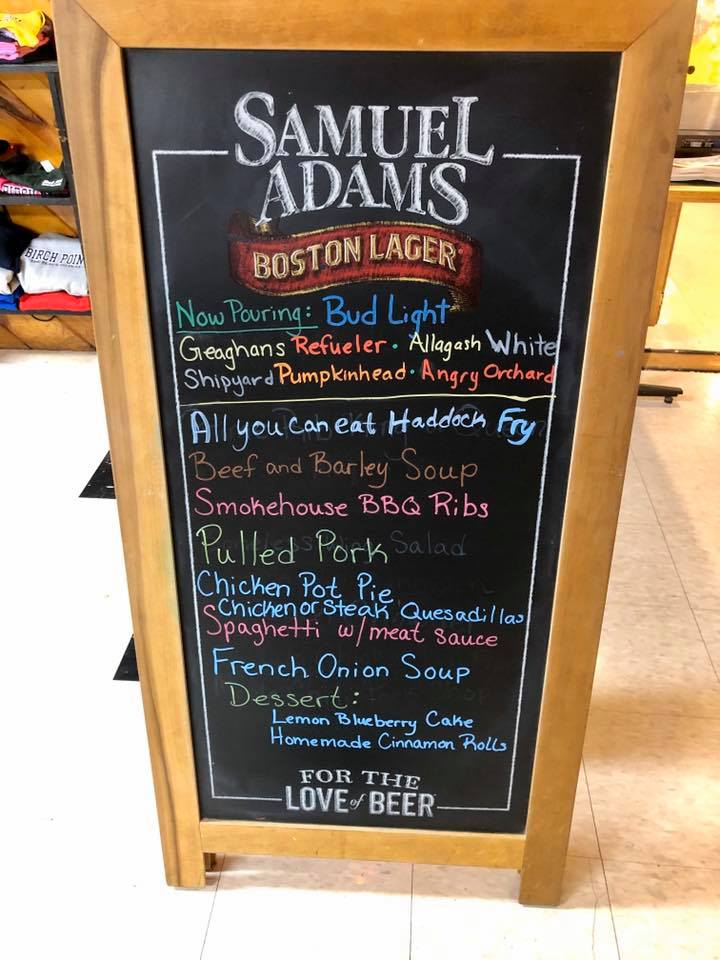 SAMUEL
ADAMS
BOSTON LAGER
Now Pouring: Bud Light
Geaghans Refueler · Allagash White
Shipyard Pumpkinhead · Angry Orchard
All you can eat Haddock Fry
Beef and Barley Soup
Smokehouse BBQ Ribs
Pulled Pork Salad
Chicken Pot Pie
Chicken or Steak Quesadillas
Spaghetti w/meat sauce
French Onion Soup
Dessert:
Lemon Blueberry Cake
Homemade Cinnamon Rolls
FOR THE
LOVE of BEER
BIRCH POIN